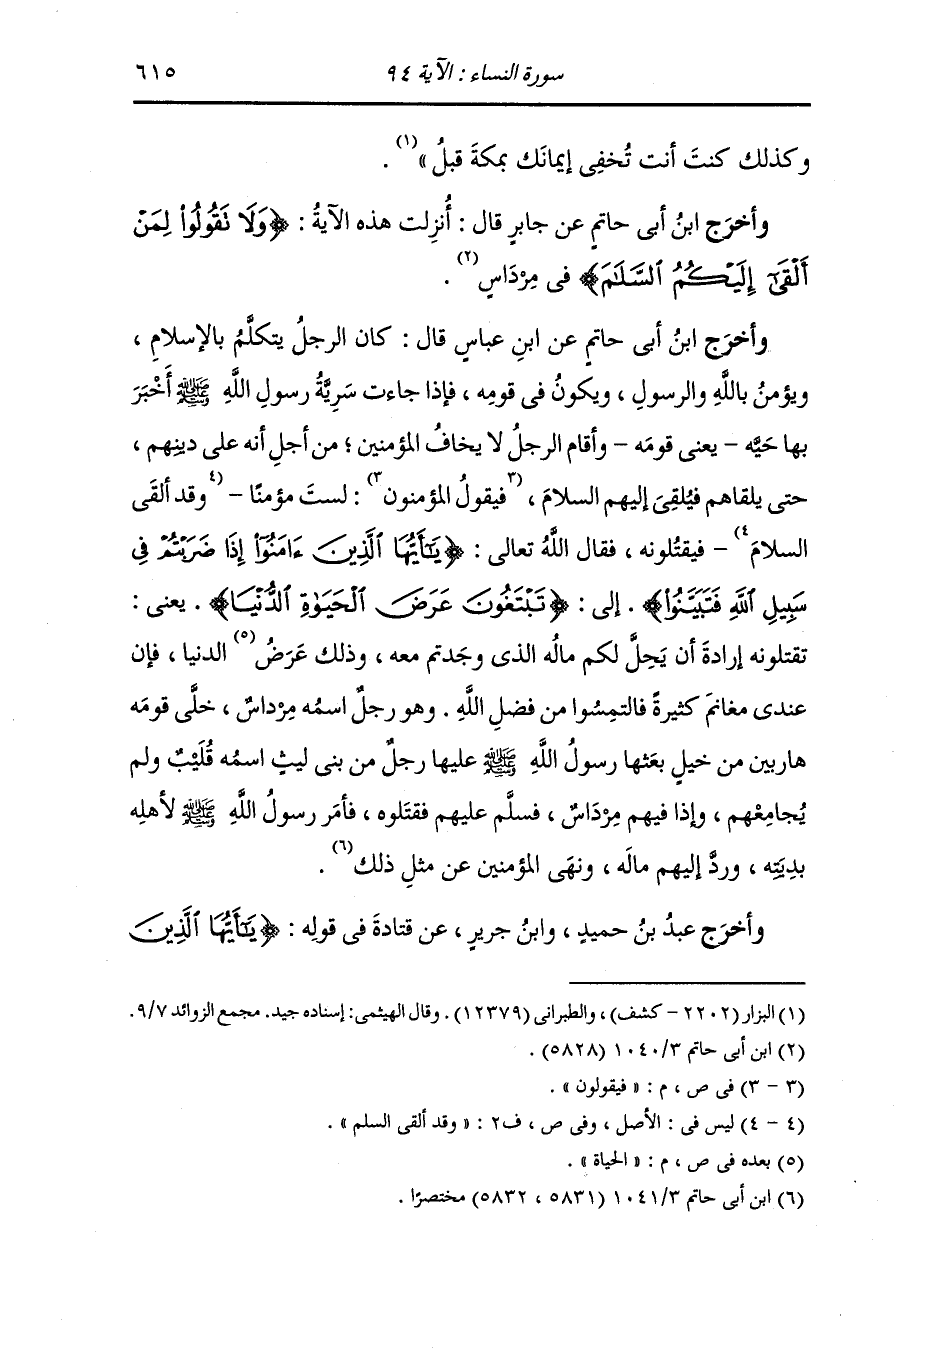 سورة النساء : الآية ٩٤ ٦١٥
وكذلك كنتَ أنت تُخفِى إيمانَك بمكةَ قبلُ»(١) .
وأخرَج ابنُ أبى حاتمٍ عن جابرٍ قال : أُنزِلت هذه الآيةُ : ﴿وَلَا تَقُولُوا۟ لِمَنْ
أَلْقَىٰٓ إِلَيْكُمُ ٱلسَّلَٰمَ﴾ فى مِرْدَاسٍ(٢) .
وأخرَج ابنُ أبى حاتمٍ عن ابنِ عباسٍ قال : كان الرجلُ يتكلَّمُ بالإسلامِ ،
ويؤمنُ باللَّهِ والرسولِ ، ويكونُ فى قومِه ، فإذا جاءت سَرِيَّةُ رسولِ اللَّهِ ﷺ أَخْبَرَ
بها حَيَّه – يعنى قومَه – وأقام الرجلُ لا يخافُ المؤمنين ؛ من أجلِ أنه على دينِهم ،
حتى يلقاهم فيُلقِىَ إليهم السلامَ ، (٣فيقولُ المؤمنون٣) : لستَ مؤمنًا – (٤وقد ألقَى
السلامَ٤) – فيقتُلونه ، فقال اللَّهُ تعالى : ﴿يَٰٓأَيُّهَا ٱلَّذِينَ ءَامَنُوٓا۟ إِذَا ضَرَبْتُمْ فِى
سَبِيلِ ٱللَّهِ فَتَبَيَّنُوا۟﴾ . إلى : ﴿تَبْتَغُونَ عَرَضَ ٱلْحَيَوٰةِ ٱلدُّنْيَا﴾ . يعنى :
تقتلونه إرادةَ أن يَحِلَّ لكم مالُه الذى وجَدتم معه ، وذلك عَرَضُ(٥) الدنيا ، فإن
عندى مغانمَ كثيرةً فالتمِسُوا من فضلِ اللَّهِ . وهو رجلٌ اسمُه مِرْداسٌ ، خلَّى قومَه
هاربين من خيلٍ بعَثها رسولُ اللَّهِ ﷺ عليها رجلٌ من بنى ليثٍ اسمُه قُلَيْبٌ ولم
يُجامِعْهم ، وإذا فيهم مِرْدَاسٌ ، فسلَّم عليهم فقتَلوه ، فأمَر رسولُ اللَّهِ ﷺ لأهلِه
بدِيَتِه ، وردَّ إليهم مالَه ، ونهَى المؤمنين عن مثلِ ذلك(٦) .
وأخرَج عبدُ بنُ حميدٍ ، وابنُ جريرٍ ، عن قتادةَ فى قولِه : ﴿يَٰٓأَيُّهَا ٱلَّذِينَ
(١) البزار (٢٢٠٢ – كشف) ، والطبرانى (١٢٣٧٩) . وقال الهيثمى : إسناده جيد. مجمع الزوائد ٩/٧ .
(٢) ابن أبى حاتم ١٠٤٠/٣ (٥٨٢٨) .
(٣ – ٣) فى ص ، م : « فيقولون » .
(٤ – ٤) ليس فى : الأصل ، وفى ص ، ف٢ : « وقد ألقى السلم » .
(٥) بعده فى ص ، م : « الحياة » .
(٦) ابن أبى حاتم ١٠٤١/٣ (٥٨٣١ ، ٥٨٣٢) مختصرًا .